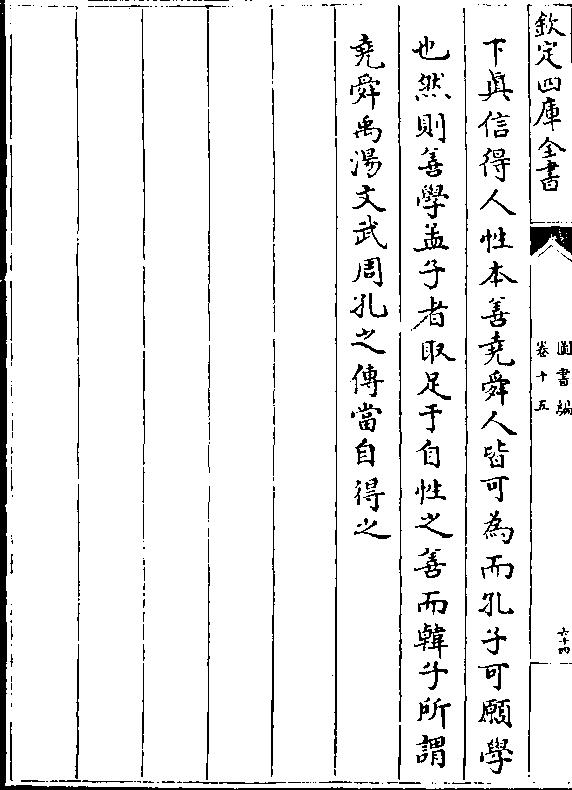 欽定四庫全書
圖書編
卷十五
六十四
下眞信得人性本善堯舜人皆可為而孔子可願學
也然則善學孟子者取足于自性之善而韓子所謂
堯舜禹湯文武周孔之傳當自得之